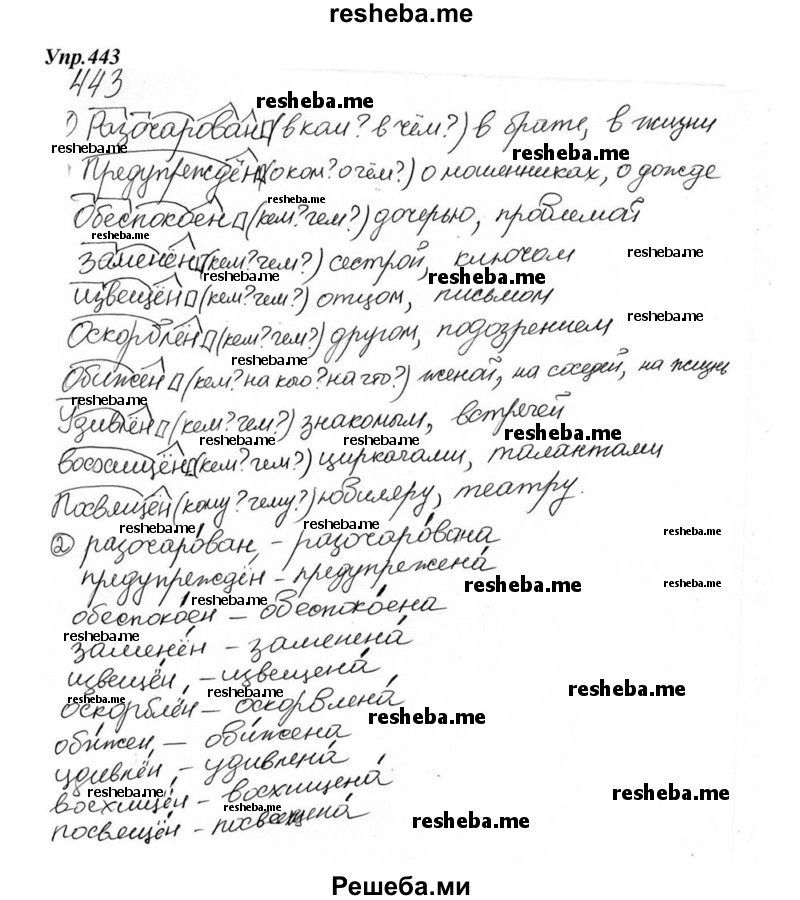 resheba.me
Упр.443
443
resheba.me
1) Разочарован (в ком? в чём?) в брате, в жизни
resheba.me
resheba.me
Предупреждён (о ком? о чём?) о мошенниках, о дожде
resheba.me
Обеспокоен (кем? чем?) дочерью, проблемой
resheba.me
resheba.me
Заменён (кем? чем?) сестрой, ключом
resheba.me
resheba.me
Извещён (кем? чем?) отцом, письмом
resheba.me
Оскорблён (кем? чем?) другом, подозрением
resheba.me
Обижен (кем? на кого? на что?) женой, на соседей, на жизнь
resheba.me
Удивлён (кем? чем?) знакомым, встречей
resheba.me
resheba.me
resheba.me
восхищён (кем? чем?) циркачами, талантами
Посвящён (кому? чему?) юбиляру, театру.
resheba.me
resheba.me
resheba.me
2) разочарован, – разочарована
предупреждён – предупрежена
resheba.me
resheba.me
resheba.me
обеспокоен – обеспокоена
resheba.me
заменён – заменена
извещён, – извещена
resheba.me
resheba.me
resheba.me
оскорблён – оскорблена
resheba.me
обижен, – обижена
удивлён, – удивлена
resheba.me
resheba.me
восхищён – восхищена
resheba.me
resheba.me
посвящён – посвящена
Решеба.ми